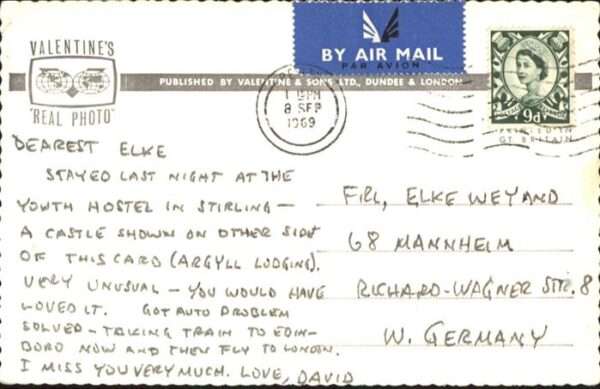 VALENTINE'S
"REAL PHOTO"
BY AIR MAIL
PAR AVION
PUBLISHED BY VALENTINE & SONS LTD., DUNDEE & LONDON
PM
8 SEP
1969
9d
PRINTED IN
GT BRITAIN
DEAREST ELKE
STAYED LAST NIGHT AT THE
YOUTH HOSTEL IN STIRLING –
A CASTLE SHOWN ON OTHER SIDE
OF THIS CARD (ARGYLL LODGING).
VERY UNUSUAL – YOU WOULD HAVE
LOVED IT. GOT AUTO PROBLEM
SOLVED – TAKING TRAIN TO EDIN-
BORO NOW AND THEN FLY TO LONDON.
I MISS YOU VERY MUCH. LOVE, DAVID
FRL, ELKE WEYAND
68 MANNHEIM
RICHARD-WAGNER STR. 8
W. GERMANY